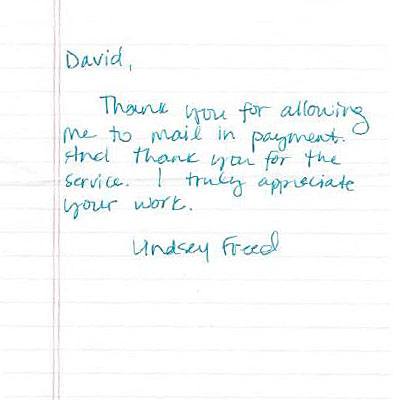 David,
Thank you for allowing
me to mail in payment.
And thank you for the
service. I truly appreciate
your work.
Lindsey Freed